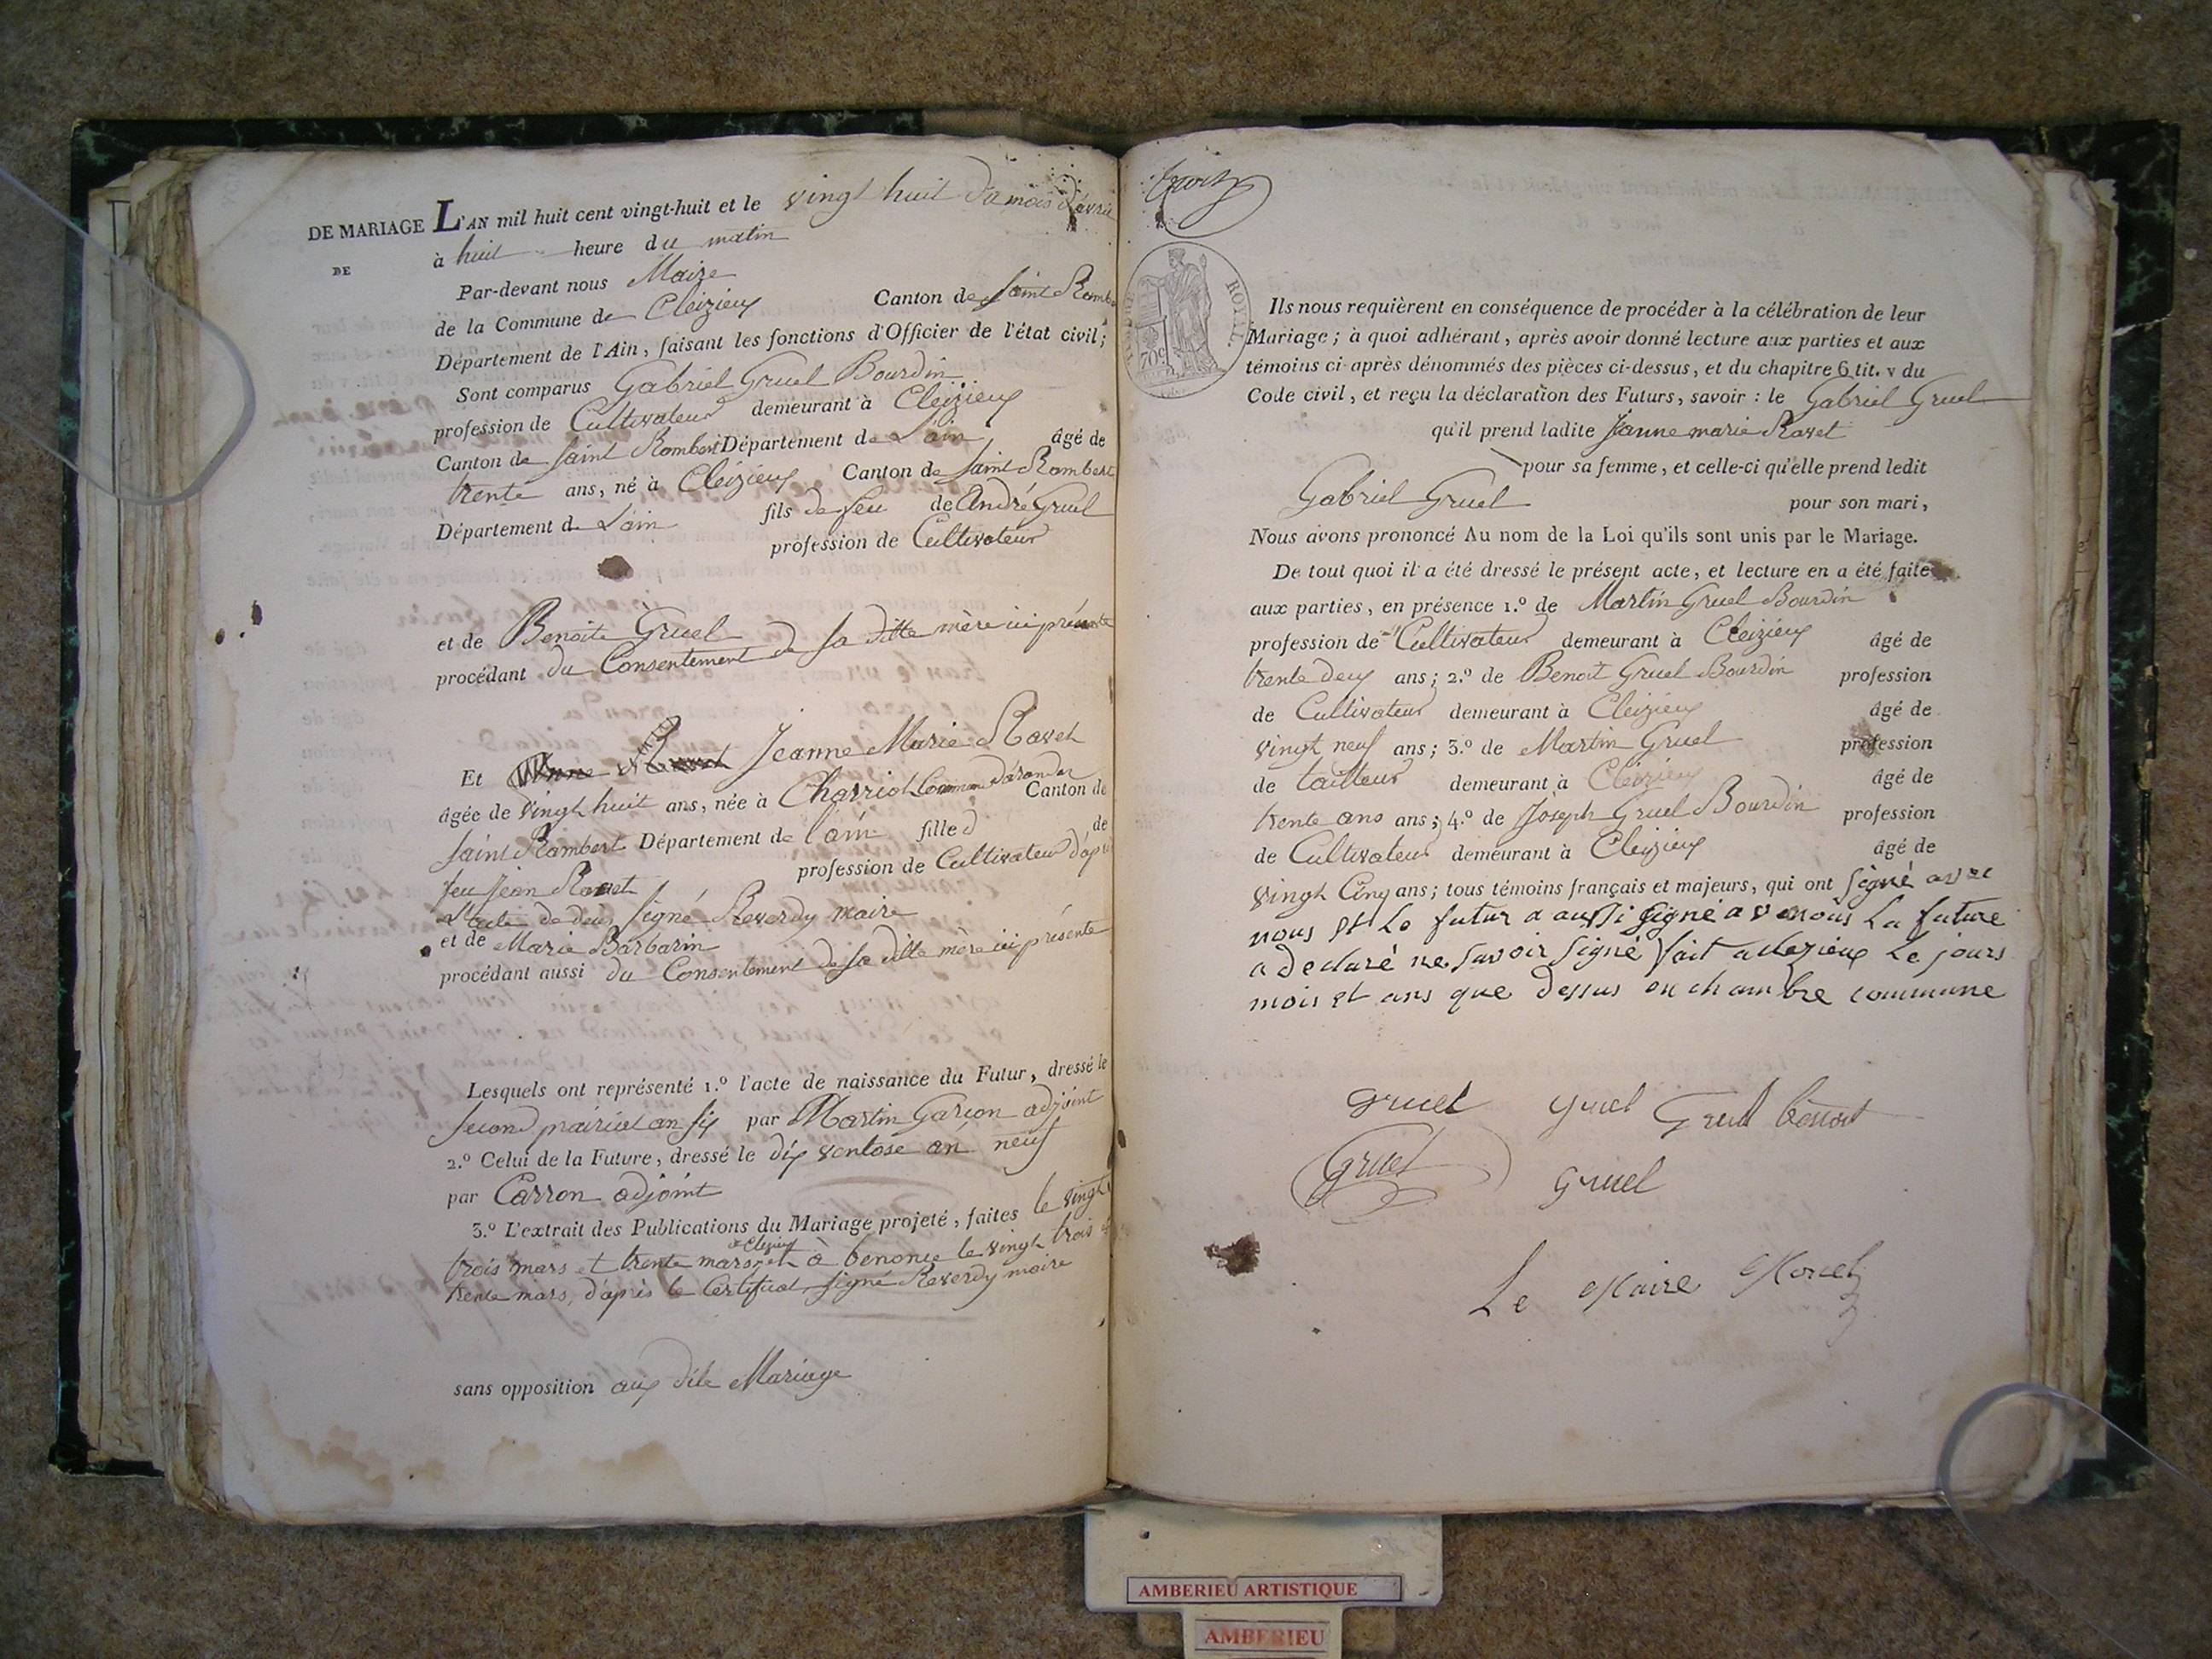 DE MARIAGE
DE
L'AN mil huit cent vingt-huit et le vingt huit du mois d'avril
à huit heure du matin
Par-devant nous Maire
de la Commune de Cleizieux Canton de Saint Rambe
Département de l'Ain, faisant les fonctions d'Officier de l'état civil;
Sont comparus Gabriel Gruel Bourdin
profession de Cultivateur demeurant à Cleizieux
Canton de Saint Rambert Département de L'ain âgé de
trente ans, né à Cleizieux Canton de Saint Rambert
Département de L'ain fils de feu de André Gruel
profession de Cultivateur
et de Benoite Gruel
procédant du Consentement de sa ditte mère ici présente
Et Jeanne Marie Ravet
âgée de vingt huit ans, née à Charriot Commune d'arandas Canton de
Saint Rambert Département de l'ain fille d de
feu Jean Ravet profession de Cultivateur d'après
L'acte de deces Signé Reverdy maire
et de Marie Barbarin
procédant aussi du Consentement de sa ditte mère ici présente
Lesquels ont représenté 1.º l'acte de naissance du Futur, dressé le
second prairial an six par Martin Garçon adjoint
2.º Celui de la Future, dressé le dix ventose an neuf
par Carron adjoint
3.º L'extrait des Publications du Mariage projeté, faites le vingt
trois mars et trente mars à Cleizieux et à benonce le vingt trois et
trente mars, d'après le Certificat signé Reverdy maire
sans opposition aux dite Mariage
ROYAL
70c
Ils nous requièrent en conséquence de procéder à la célébration de leur
Mariage; à quoi adhérant, après avoir donné lecture aux parties et aux
témoins ci-après dénommés des pièces ci-dessus, et du chapitre 6 tit. v du
Code civil, et reçu la déclaration des Futurs, savoir : le Gabriel Gruel
qu'il prend ladite Jeanne marie Ravet
pour sa femme, et celle-ci qu'elle prend ledit
Gabriel Gruel pour son mari,
Nous avons prononcé Au nom de la Loi qu'ils sont unis par le Mariage.
De tout quoi il a été dressé le présent acte, et lecture en a été faite
aux parties, en présence 1.º de Martin Gruel Bourdin
profession de Cultivateur demeurant à Cleizieux âgé de
trente deux ans; 2.º de Benoit Gruel Bourdin profession
de Cultivateur demeurant à Cleizieux âgé de
vingt neuf ans; 3.º de Martin Gruel profession
de tailleur demeurant à Cleizieux âgé de
trente ans ans; 4.º de Joseph Gruel Bourdin profession
de Cultivateur demeurant à Cleizieux âgé de
vingt Cinq ans; tous témoins français et majeurs, qui ont signé avec
nous et Le futur a aussi signé avenous La future
a declaré ne savoir signé fait a clezieux Le jours
mois et ans que dessus en chambre commune
gruel gruel Gruel benoit
Gruel gruel
Le Maire Morel
AMBERIEU ARTISTIQUE
AMBERIEU